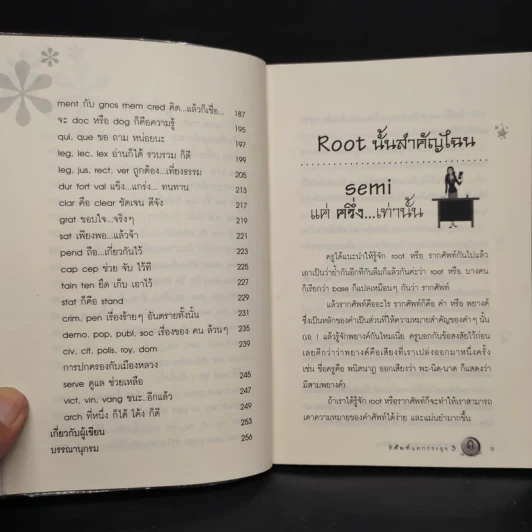 ment กับ gnos mem cred คิด...แล้วก็เชื่อ... 187
จะ doc หรือ dog ก็คือความรู้ 195
qui, que ขอ ถาม หน่อยนะ 197
leg, lec, lex อ่านก็ได้ รวบรวม ก็ดี 199
leg, jus, rect, ver ถูกต้อง...เที่ยงธรรม 205
dur fort val แข็ง...แกร่ง... ทนทาน 213
clar คือ clear ชัดเจน ดีจัง 217
grat ขอบใจ...จริงๆ 219
sat เพียงพอ...แล้วจ้า 221
pend ถือ...เกี่ยวกันไว้ 223
cap cep ช่วย จับ ไว้ที 225
tain ten ยึด เก็บ เอาไว้ 227
stat ก็คือ stand 229
crim, pen เรื่องร้ายๆ อันตรายทั้งนั้น 231
demo, pop, publ, soc เรื่องของ คน ล้วนๆ 235
civ, cit, polis, roy, dom
การปกครองกับเมืองหลวง 239
serve ดูแล ช่วยเหลือ 245
vict, vin, vang ชนะ..อีกแล้ว 247
arch ที่หนึ่ง ก็ได้ โค้ง ก็ดี 249
เกี่ยวกับผู้เขียน 253
บรรณานุกรม 256
Root นั้นสำคัญไฉน
semi
แค่ ครึ่ง...เท่านั้น
ครูได้แนะนำให้รู้จัก root หรือ รากศัพท์กันไปแล้ว
เอาเป็นว่าย้ำกันอีกทีกันลืมก็แล้วกันค่ะว่า root หรือ บางคน
ก็เรียกว่า base ก็แปลเหมือนๆ กันว่า รากศัพท์
แล้วรากศัพท์คืออะไร รากศัพท์ก็คือ คำ หรือ พยางค์
ซึ่งเป็นหลักของคำเป็นส่วนที่ให้ความหมายสำคัญของคำๆ นั้น
(เอ ! แล้วรู้จักพยางค์กันไหมเนี่ย ครูบอกกันข้อสงสัยไว้ก่อน
เลยดีกว่าว่าพยางค์คือเสียงที่เราเปล่งออกมาหนึ่งครั้ง
เช่น ชื่อครูคือ พนิตนาฏ ออกเสียงว่า พะ-นิด-นาด ก็แสดงว่า
มีสามพยางค์)
ถ้าเราได้รู้จัก root หรือรากศัพท์ก็จะทำให้เราสามารถ
เดาความหมายของคำศัพท์ได้ง่าย และแม่นยำมากขึ้น
ศัพท์แตกกระจุย 3 9